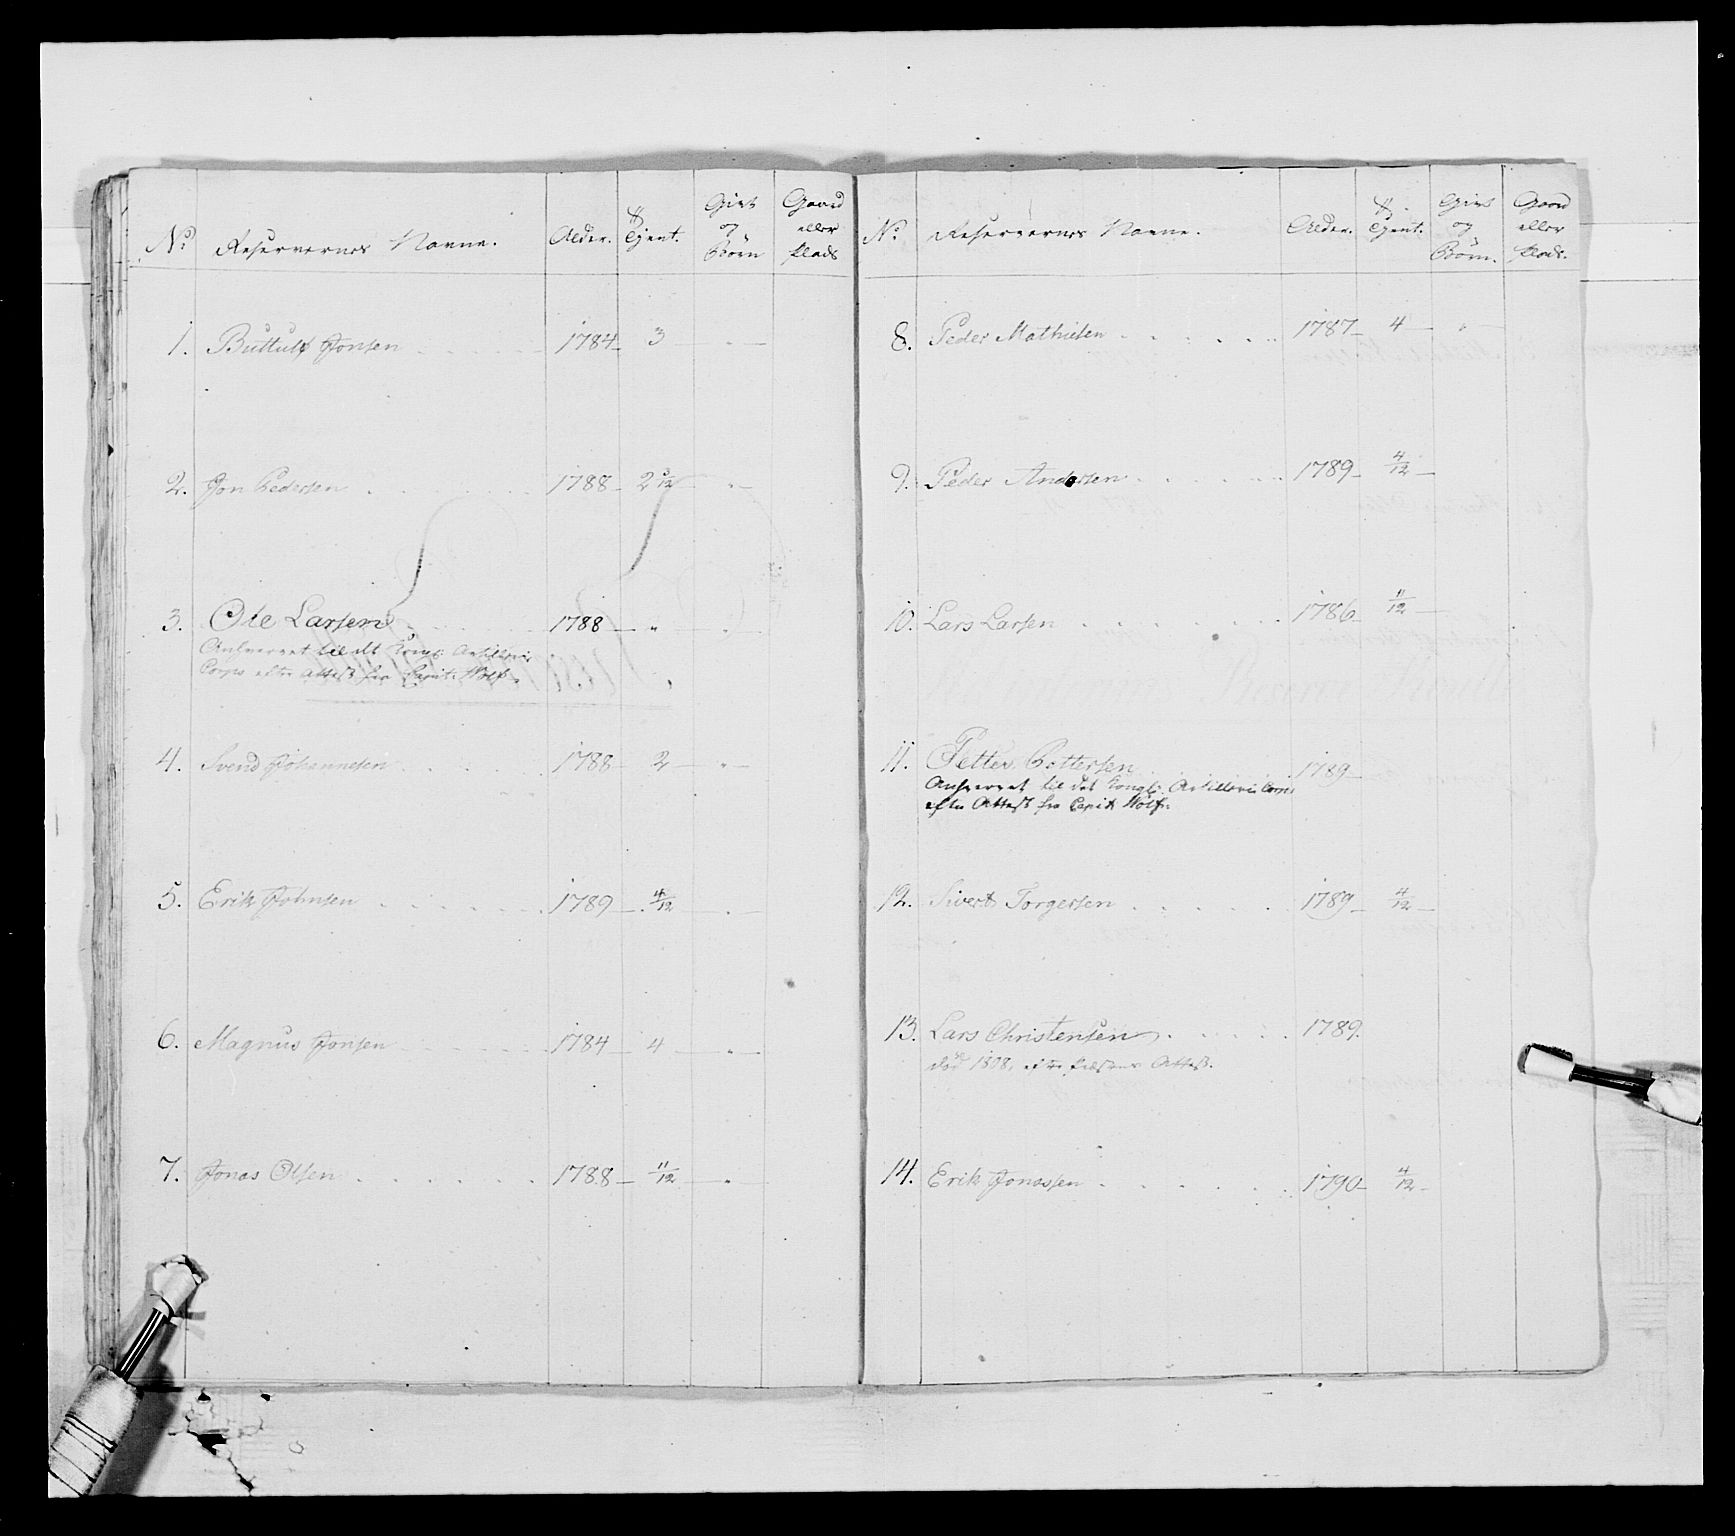 No Reservernes Navne. Alder. Tjent. Givt og Børn Gaard eller Plads
1. Buttulf Jonsen 1784 3 "
2. Jon Pedersen 1788 2 5/12 "
3. Ole Larsen 1788 " "
Anhvervet til det Kongl: Artillerie
Corps efter Attest fra Capit: Wolf.
4. Svend Johannesen 1788 2 "
5. Erik Johnsen 1789 4/12 "
6. Magnus Jonsen 1784 4 "
7. Jonas Olsen 1788 11/12 "
No Reservernes Navne. Alder. Tjent. Givt og Børn. Gaard eller Plads.
8. Peder Mathiesen 1787 4 "
9. Peder Andersen 1789 4/12
10. Lars Larsen 1786 11/12
11. Petter Pettersen 1789
Anhvervet til det Kongl: Artillerie Corps
efter Attest fra Capit Wolf.
12. Sivert Torgersen 1789 4/12
13. Lars Christensen 1789.
død 1808, efter Præstens Attest.
14. Erik Jonassen 1790 4/12